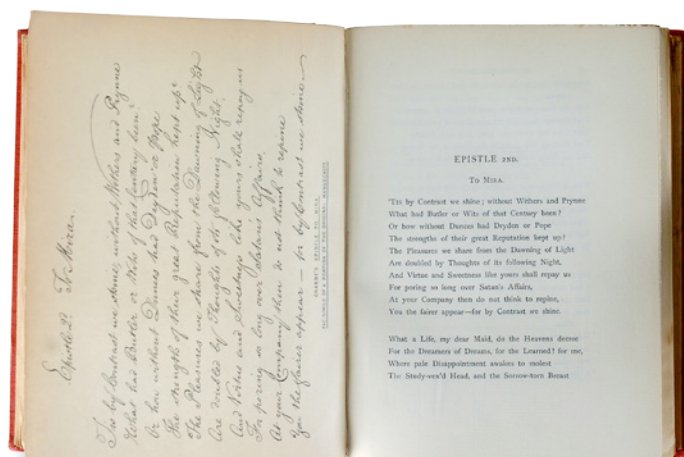 Epistle 2d. To Mira.
Tis by Contrast we shine; without Withers and Prynne
What had Butler or Wits of that Century been?
Or how without Dunces had Dryden or Pope
The strengths of their great Reputation kept up?
The Pleasures we share from the Dawning of Light
Are doubled by Thoughts of its following Night,
And Virtue and Sweetness like yours shall repay us
For poring so long over Satan's Affairs,
At your Company then do not think to repine
You the fairer appear — for by Contrast we shine
CRABBE'S EPISTLE TO MIRA
FAC-SIMILE OF A PORTION OF THE ORIGINAL MANUSCRIPT
EPISTLE 2ND.
TO MIRA.
'Tis by Contrast we shine; without Withers and Prynne
What had Butler or Wits of that Century been?
Or how without Dunces had Dryden or Pope
The strengths of their great Reputation kept up?
The Pleasures we share from the Dawning of Light
Are doubled by Thoughts of its following Night,
And Virtue and Sweetness like yours shall repay us
For poring so long over Satan's Affairs,
At your Company then do not think to repine,
You the fairer appear—for by Contrast we shine.
What a Life, my dear Maid, do the Heavens decree
For the Dreamers of Dreams, for the Learned! for me,
Where pale Disappointment awakes to molest
The Study-vex'd Head, and the Sorrow-torn Breast